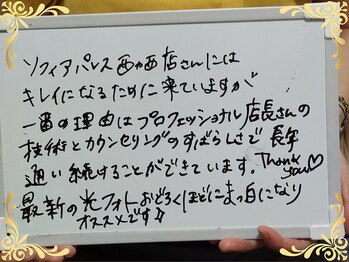 ソフィアパレス西葛西店さんには
キレイになるために来ていますが
一番の理由はプロフェッショナル店長さんの
技術とカウンセリングのすばらしさで長年
通い続けることができています。Thank you♡
最新の光フォトおどろくほどにまっ白になり
オススメです♪